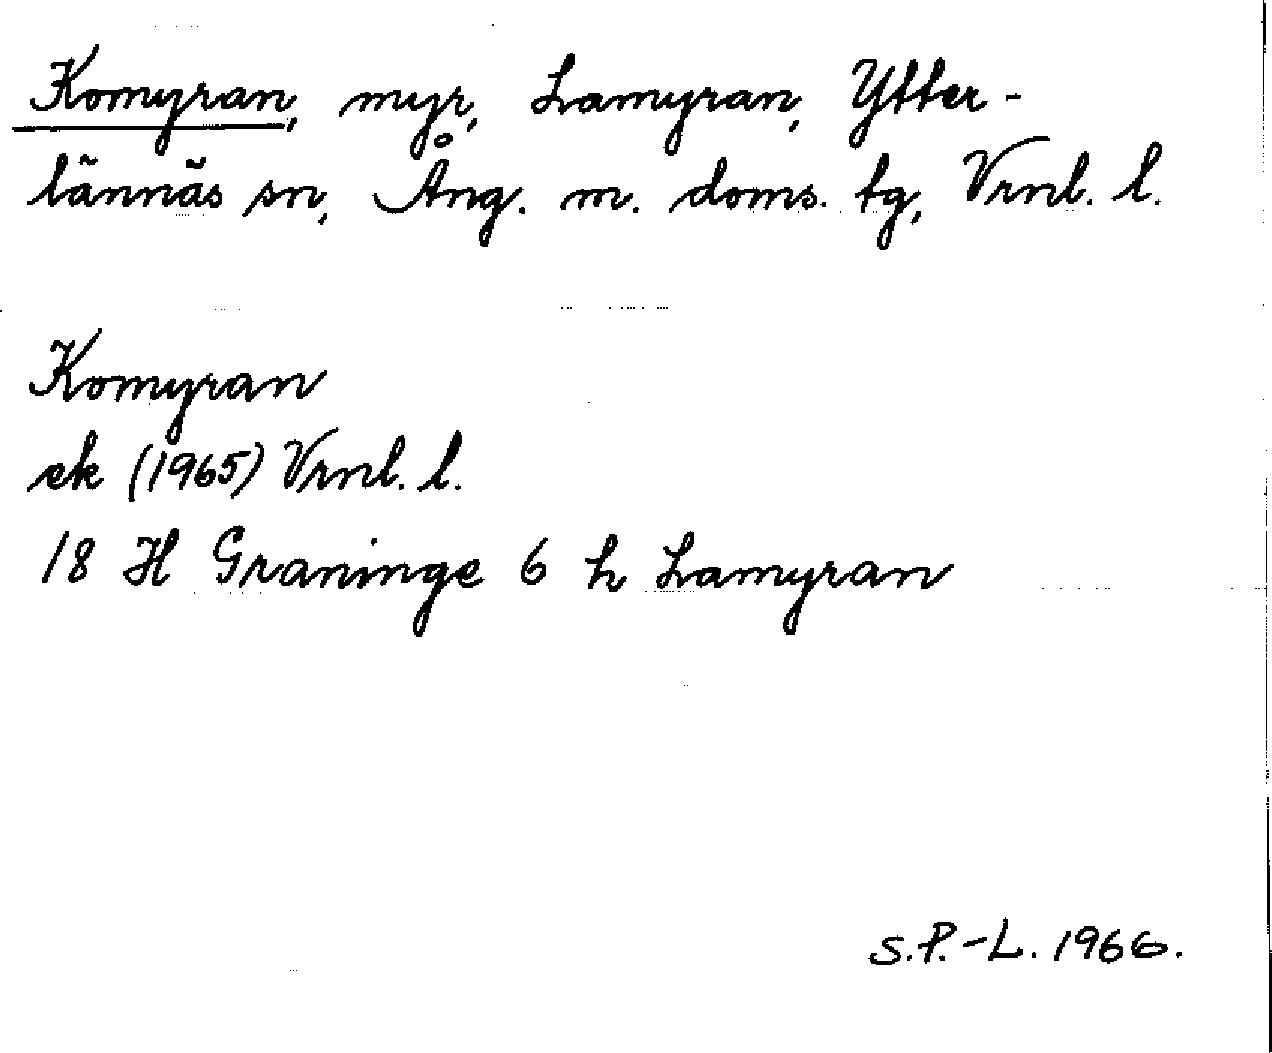 Komyran, myr, Lamyran, Ytter-
lännäs sn, Ång. m. doms. tg, Vrnl. l.
Komyran
ek (1965) Vrnl. l.
18 H Graninge 6 h Lamyran
S.P.-L. 1966.